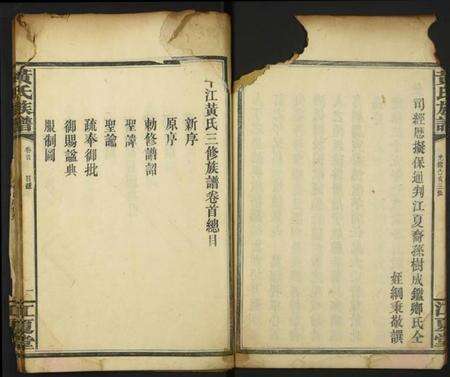 黃氏族譜
光緒乙亥三修
江夏堂
司經歷擬保通判江夏裔孫樹成鑑卿氏全
姪綱秉敬譔
江黃氏三修族譜卷首總目
新序
原序
勅修譜詔
聖諱
聖諭
疏奉御批
御賜謚典
服制圖
黃氏族譜
卷首
目錄
一
江夏堂